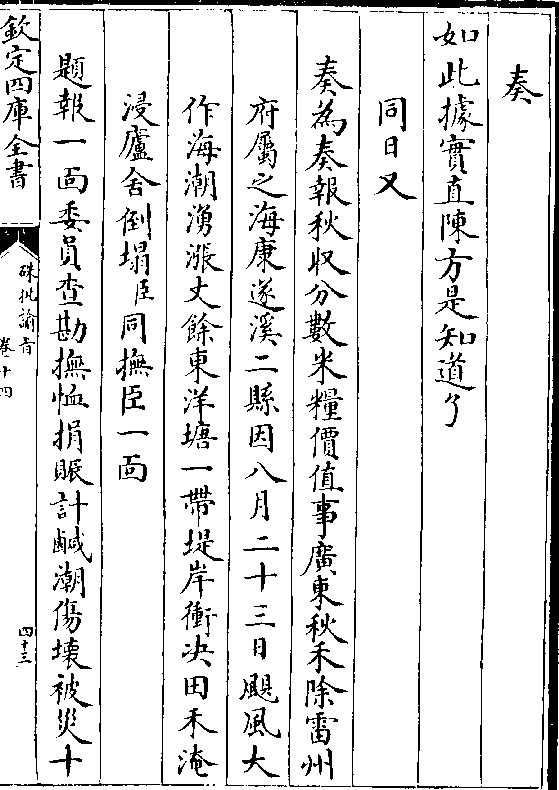 奏
如此據實直陳方是知道了
同日又
奏為奏報秋收分數米糧價值事廣東秋禾除雷州
府屬之海康遂溪二縣因八月二十三日颶風大
作海潮湧漲丈餘東洋塘一帶堤岸衝决田禾淹
浸廬舍倒塌臣同撫臣一面
題報一面委員查勘撫恤捐賑計鹹潮傷壞被災十
欽定四庫全書
硃批諭旨
卷十四
四十三